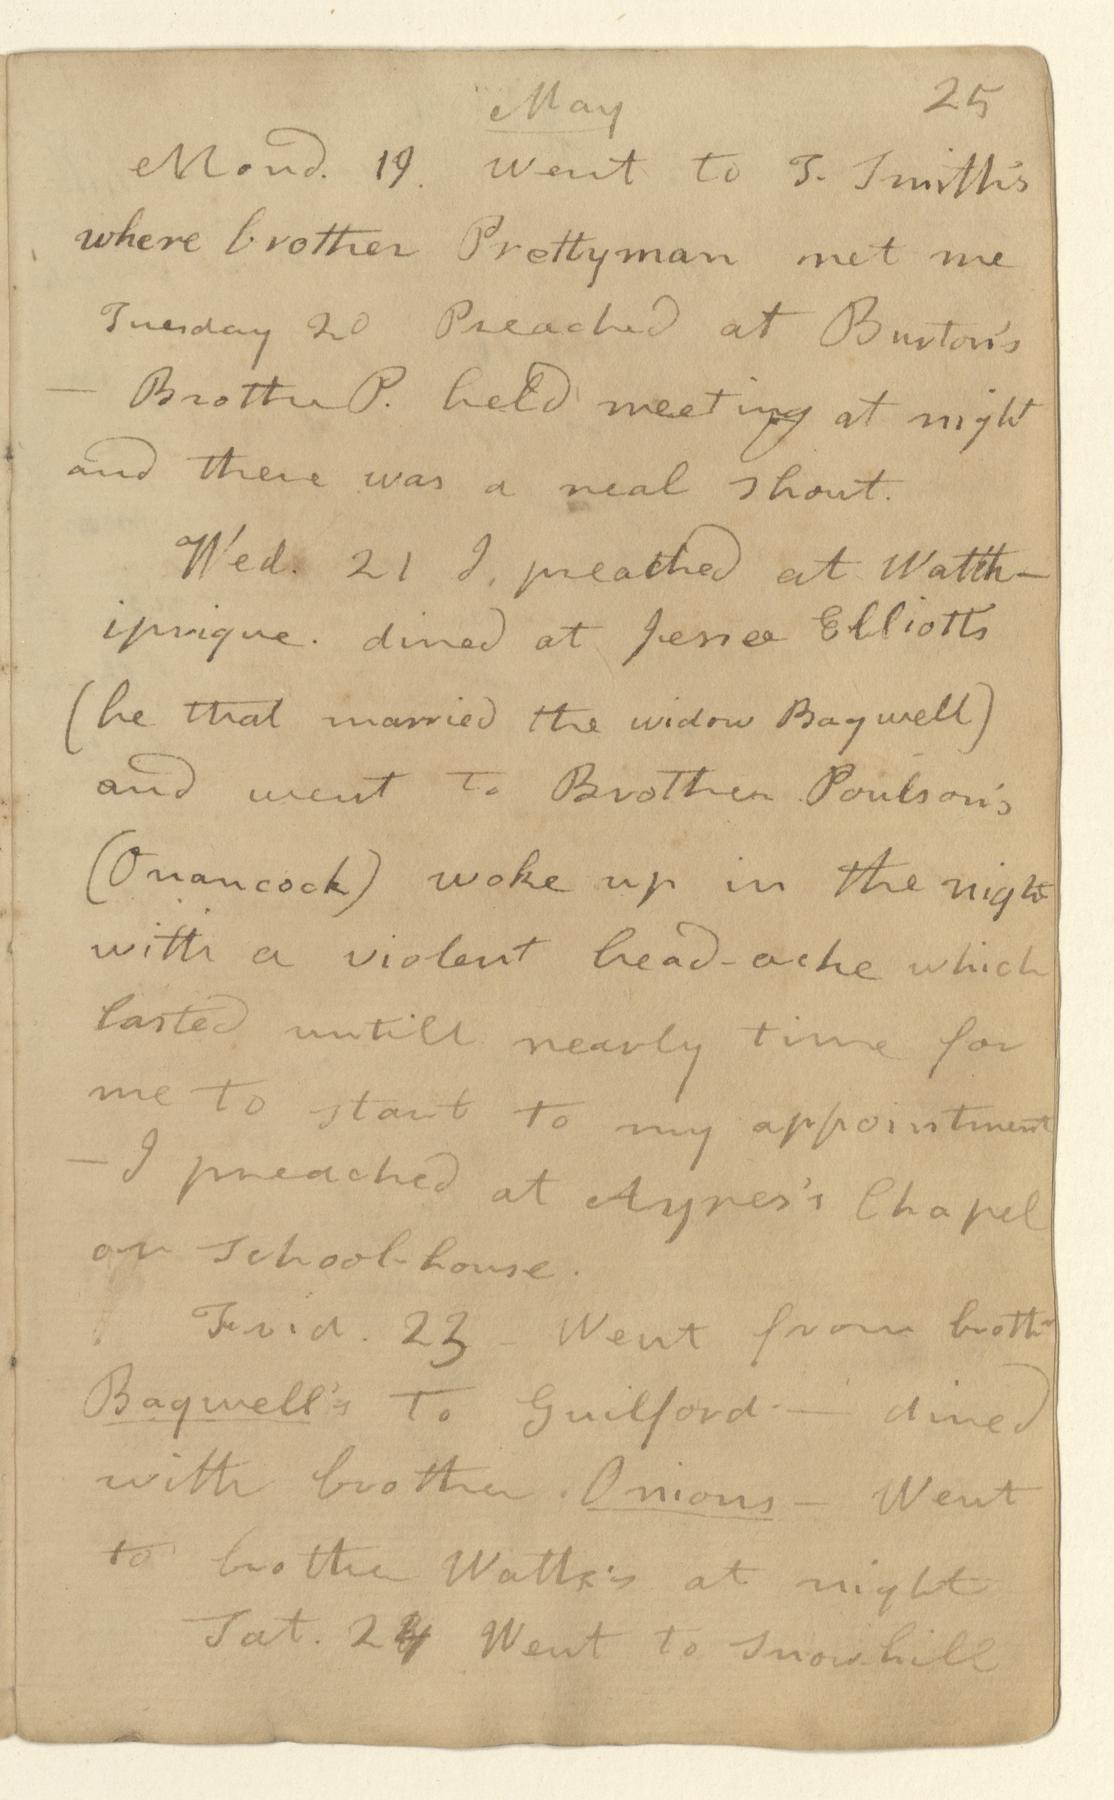 May 25
Mond. 19. Went to T. Smith's
where brother Prettyman met me
Tuesday 20 Preached at Burton's
— Brother P. held meeting at night
and there was a real shout.
Wed. 21 I, preached at Watth-
iprique. dined at Jessee Elliotts
(he that married the widow Bagwell)
and went to Brother Poulson's
(Onancock) woke up in the night
with a violent head-ache which
lasted untill nearly time for
me to start to my appointment
— I preached at Ayres's Chapel
or School-house.
Frid. 23 - Went from brothr
Bagwell's to Guilford — dined
with brother Onions — Went
to brother at night
Sat. 24 Went to Snowhill